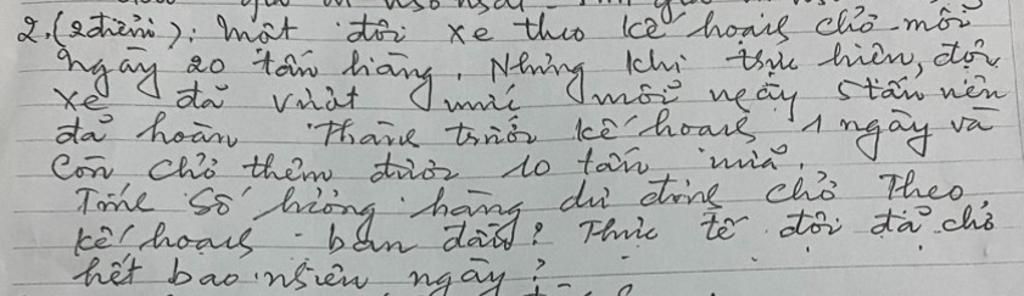 2. (2 điểm): Một đội xe theo kế hoạch chở mỗi
ngày 20 tấn hàng. Nhưng khi thực hiện, đội
xe đã vượt mức mỗi ngày 5 tấn nên
đã hoàn thành trước kế hoạch 1 ngày và
còn chở thêm được 10 tấn nữa.
Tính số lượng hàng dự định chở theo
kế hoạch ban đầu? Thực tế đội đã chở
hết bao nhiêu ngày?